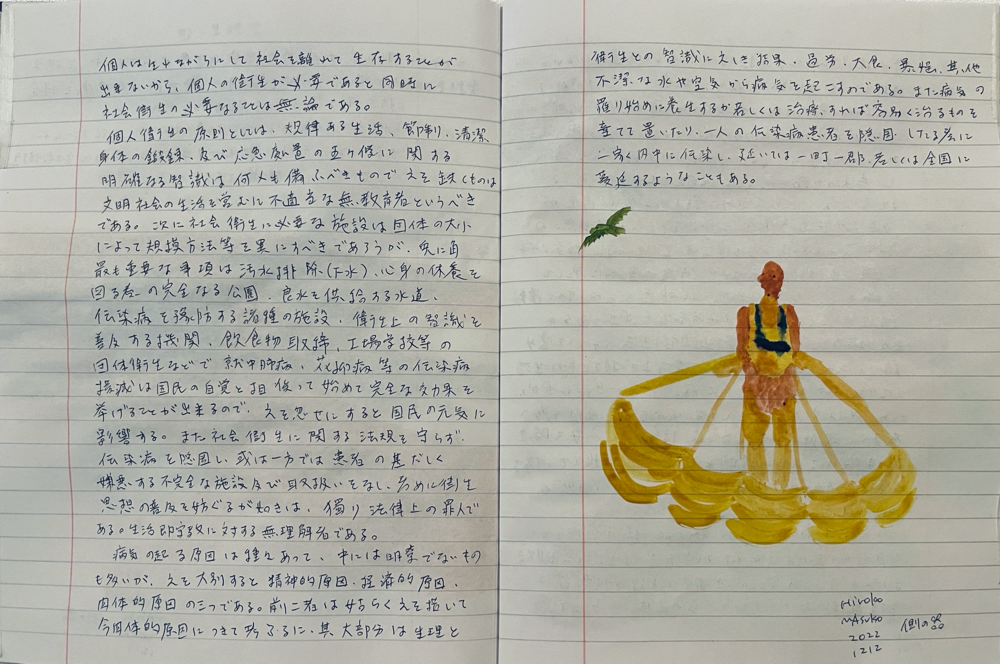 個人は生れながらにして社会を離れて生存することが
出来ないから、個人の衛生が必要であると同時に
社会衛生の必要なることは無論である。
個人衛生の原則としては、規律ある生活、節制、清潔
身体の鍛錬、及び応急処置の五ヶ條に関する
明確なる智識は何人も備ふべきもので之を缺くものは
文明社会の生活を営むに不適当な無教育者といふべき
である。次に社会衛生に必要な施設は団体の大小
によって規模方法等を異にすべきであろうが、兎に角
最も重要な事項は汚水排除(下水)、心身の休養を
図る為めの完全なる公園、良水を供給する水道、
伝染病を豫防する諸種の施設、衛生上の智識を
普及する機関、飲食物取締、工場学校等の
団体衛生などで就中肺病、花柳病等の伝染病
撲滅は国民の自覚と相俟って始めて完全な効果を
挙げることが出来るので、之を忽せにすると国民の元気に
影響する。また社会衛生に関する法規を守らず、
伝染病を隠匿し或は一方では患者の甚だしく
嫌悪する不完全な施設及び取扱いをなし、為めに衛生
思想の普及を妨ぐるが如きは、獨り法律上の罪人で
ある。生活即宗教に対する無理解者である。
病気の起る原因は種々あって、中には明瞭でないもの
も多いが、之を大別すると精神的原因、経済的原因、
肉体的原因の三つである。前二者は姑らく之を措いて
今肉体的原因につきて考ふるに、其大部分は生理と
衛生との智識に乏しき結果、過労、大食、暴飲、其他
不潔な水や空気から病気を起こすのである。また病気の
罹り始めに養生するか若しくは治療すれば容易く治るものを
棄てて置いたり、一人の伝染病患者を隠匿したる為に
一家内中に伝染し、延いては一町一郡、若しくは全国に
蔓延するようなこともある。
Hiroko
MAsuko
2022
1212
側の器